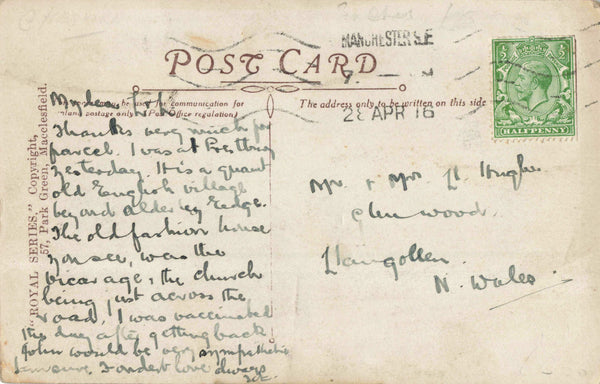 MANCHESTER S.E
28 APR 16
POST CARD
may be used for communication for
Inland postage only (Post Office regulation)
The address only to be written on this side
HALFPENNY
"ROYAL SERIES," Copyright,
57, Park Green, Macclesfield.
My dear
Thanks very much for
parcel. I was at Prestbury
yesterday. It is a quaint
old English village
beyond Alderley Edge.
The old fashion house
you see, was the
vicarage, the church
being just across the
road. I was vaccinated
the day after getting back!
John would be very sympathetic
I'm sure. Fondest love always
Mr & Mrs Hughes
Glenwood.
Llangollen.
N. Wales.